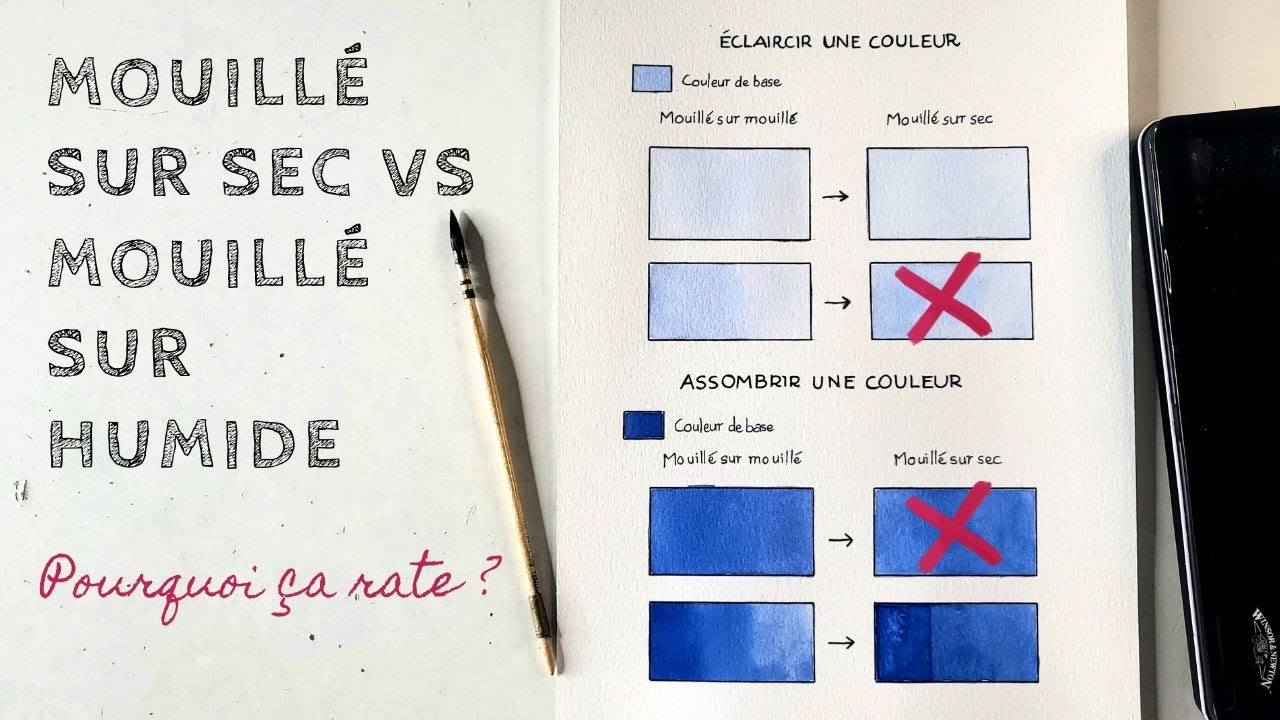 MOUILLÉ
SUR SEC VS
MOUILLÉ
SUR
HUMIDE
Pourquoi ça rate ?
ÉCLAIRCIR UNE COULEUR
Couleur de base
Mouillé sur mouillé
Mouillé sur sec
ASSOMBRIR UNE COULEUR
Couleur de base
Mouillé sur mouillé
Mouillé sur sec
WINSOR & NEWTON